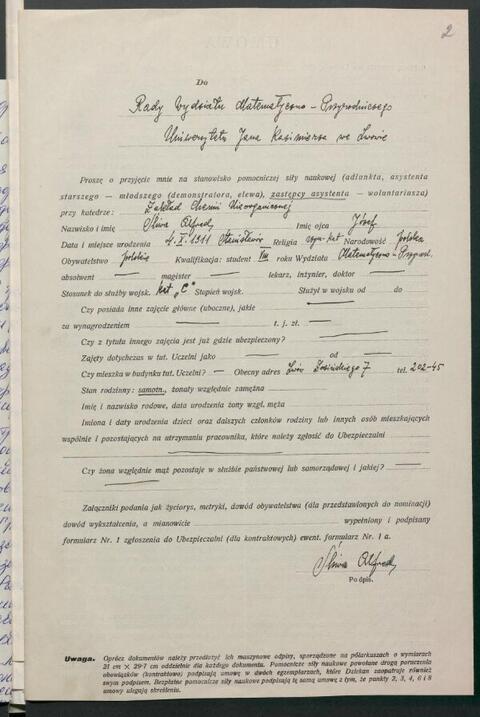 2
Do
Rady Wydziału Matematyczno-Przyrodniczego
Uniwersytetu Jana Kazimierza we Lwowie
Proszę o przyjęcie mnie na stanowisko pomocniczej siły naukowej (adiunkta, asystenta
starszego — młodszego (demonstratora, elewa), zastępcy asystenta — woluntariusza)
przy katedrze: Zakład Chemii Nieorganicznej
Nazwisko i imię Śliwa Alfred Imię ojca Józef
Data i miejsce urodzenia 4. X. 1911 Stanisławów Religia rzym-kat Narodowość polska
Obywatelstwo polskie Kwalifikacja: student roku Wydziału Matematyczno-Przyrod.
absolwent — magister — lekarz, inżynier, doktor —
Stosunek do służby wojsk. kat „C" Stopień wojsk. Służył w wojsku od do
Czy posiada inne zajęcie główne (uboczne), jakie —
za wynagrodzeniem — t. j. zł. —
Czy z tytułu innego zajęcia jest już gdzie ubezpieczony? —
Zajęty dotychczas w tut. Uczelni jako — od —
Czy mieszka w budynku tut. Uczelni? — Obecny adres: Lwów 7 tel. 202-45
Stan rodzinny: samotn., żonaty względnie zamężna
Imię i nazwisko rodowe, data urodzenia żony wzgl. męża
Imiona i daty urodzenia dzieci oraz dalszych członków rodziny lub innych osób mieszkających
wspólnie i pozostających na utrzymaniu pracownika, które należy zgłosić do Ubezpieczalni
Czy żona względnie mąż pozostaje w służbie państwowej lub samorządowej i jakiej? —
Załączniki podania jak życiorys, metryki, dowód obywatelstwa (dla przedstawionych do nominacji)
dowód wykształcenia, a mianowicie wypełniony i podpisany
formularz Nr. 1 zgłoszenia do Ubezpieczalni (dla kontraktowych) ewent. formularz Nr. 1 a.
Śliwa Alfred
Podpis.
Uwaga. Oprócz dokumentów należy przedłożyć ich maszynowe odpisy, sporządzone na półarkuszach o wymiarach
21 cm × 29·7 cm oddzielnie dla każdego dokumentu. Pomocnicze siły naukowe powołane drogą poruczenia
obowiązków (kontraktowo) podpisują umowę w dwóch egzemplarzach, które Dziekan zaopatruje również
swym podpisem. Bezpłatne pomocnicze siły naukowe podpisują tę samą umowę z tym, że punkty 2, 3, 4, 6 i 8
umowy ulegają skreśleniu.